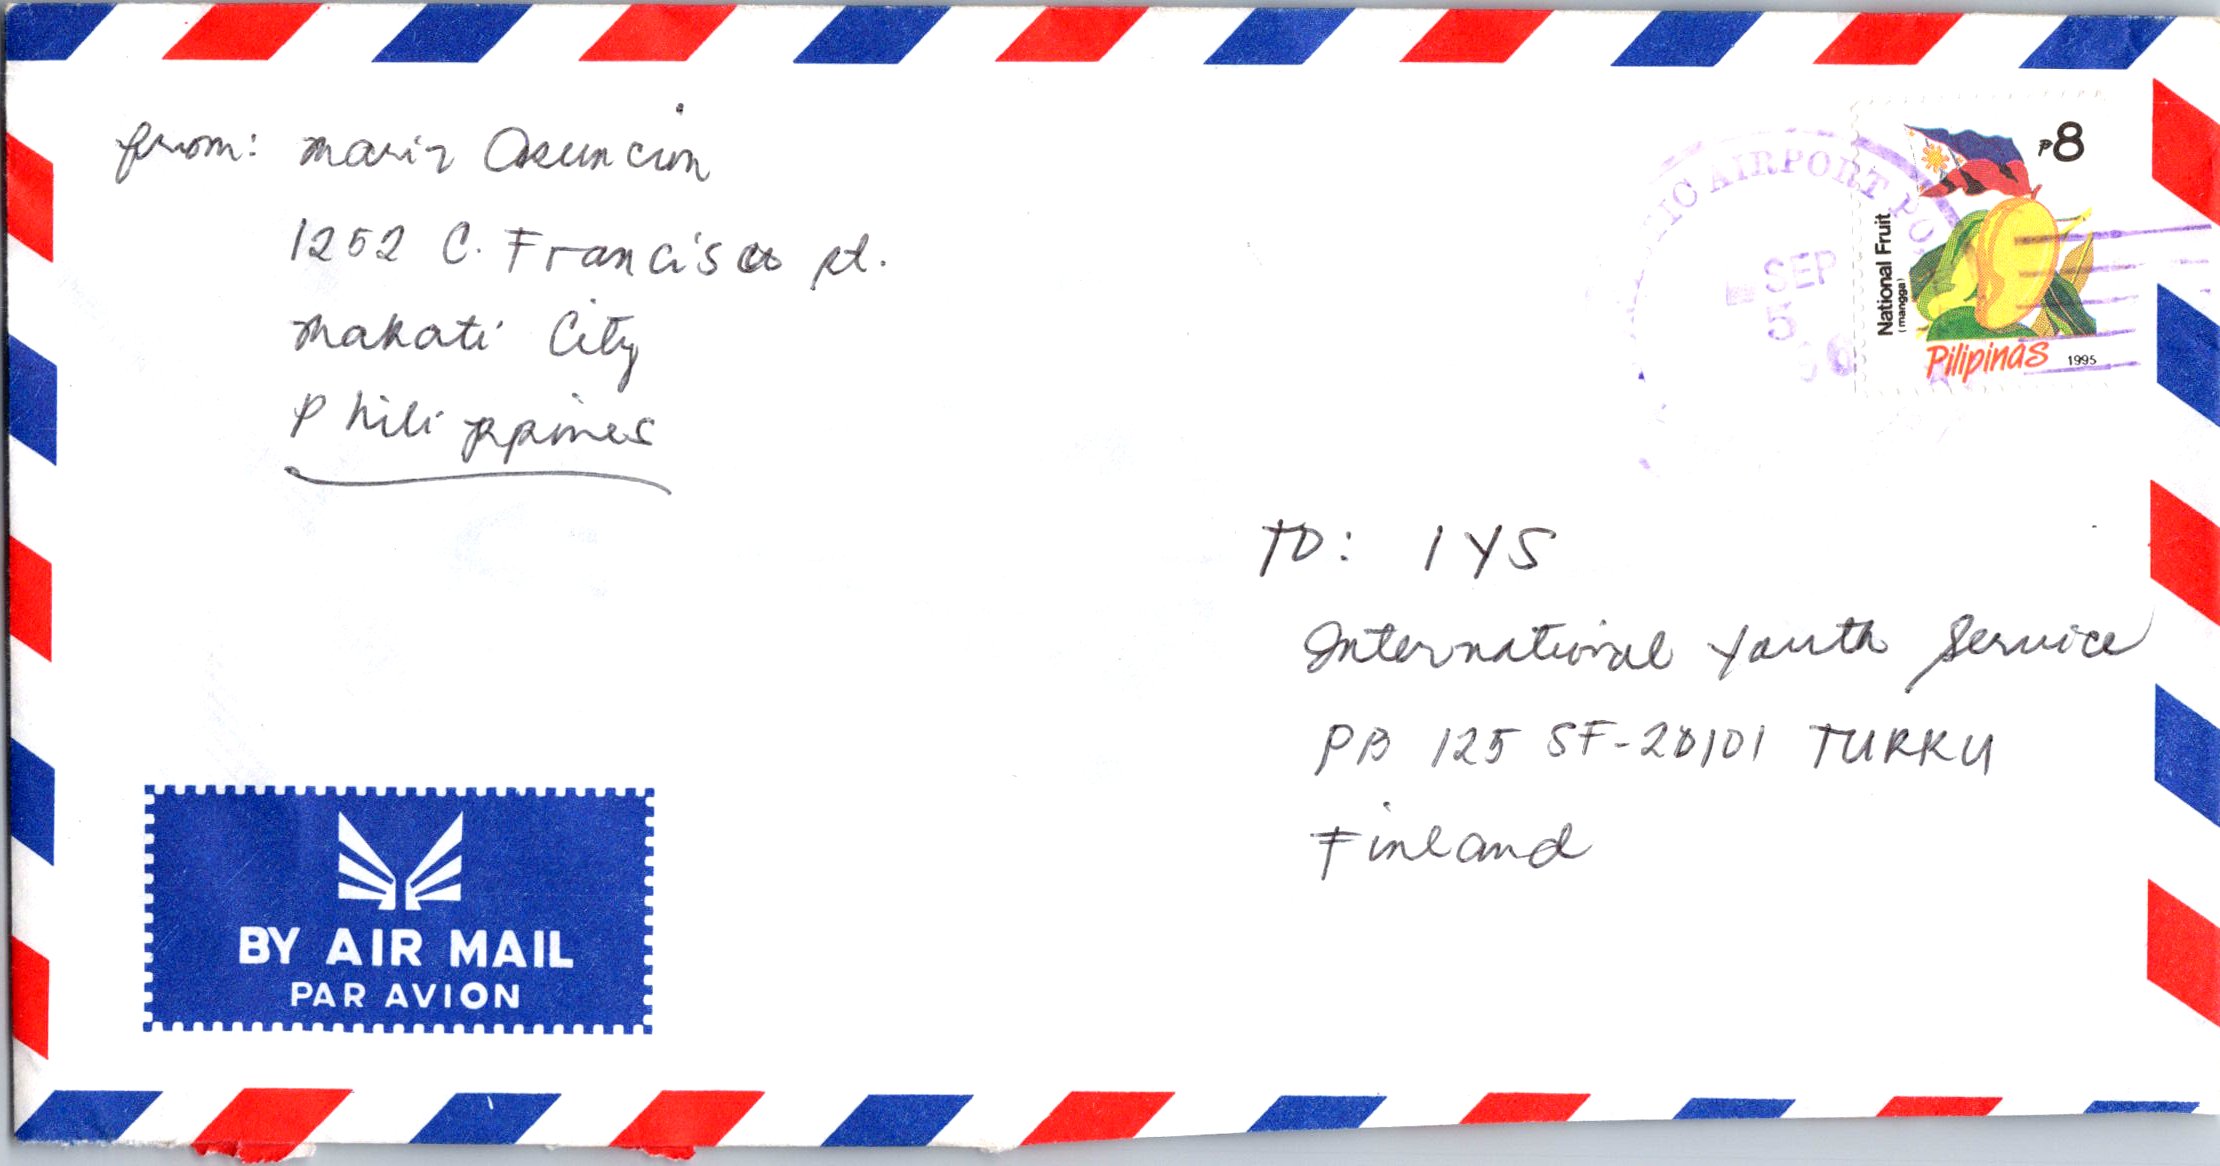 from: Mariz Asuncion
1252 C. Francisco st.
Makati City
Philippines
AIRPORT
SEP
5
₱8
National Fruit
(mangga)
Pilipinas 1995
TO: IYS
International Youth Service
PB 125 SF-20101 TURKU
Finland
BY AIR MAIL
PAR AVION